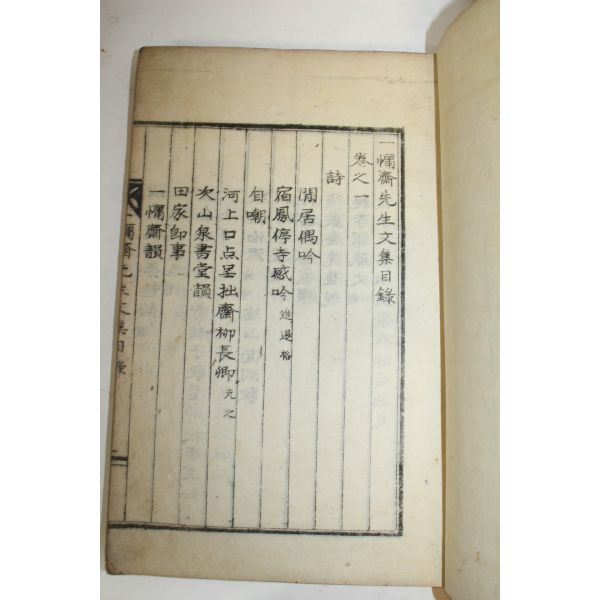 一慵齋先生文集目錄
卷之一
詩
閒居偶吟
宿鳳停寺感吟 進退格
自嘲
河上口点呈拙齋柳長卿 元之
次山泉書堂韻
田家卽事
一慵齋韻
慵齋先生文集目錄 一